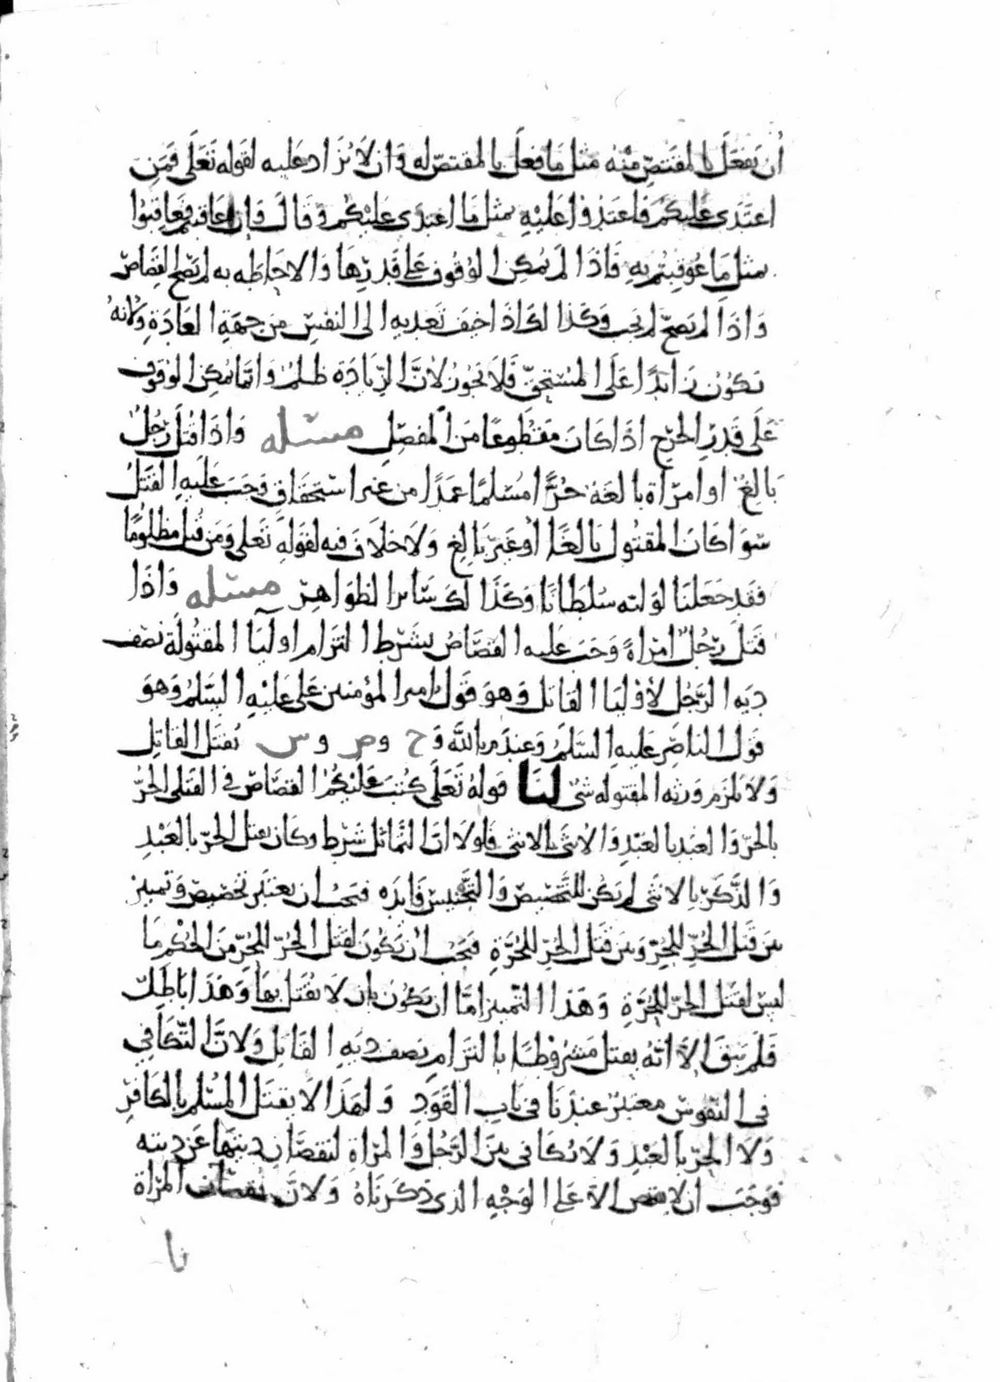 أن يفعل بالمقتص منه مثل ما فعل بالمقتص له وان لا يزاد عليه لقوله تعلى فمن
اعتدى عليكم فاعتدوا عليه بمثل ما اعتدى عليكم وقال وان عاقبتم فعاقبوا
بمثل ما عوقبتم به فاذا لم يمكن الوقوف على قدرها والاحاطه به لم يصح القصاص
واذا لم يصح لم يجب وكذلك اذا خيف تعديه الى النفس من جهة العادة ولانه
يكون زايدا على المستحق فلا يجوز لان الزيادة ظلم وانما يمكن الوقوف
على قدر الجرح اذا كان مقطوعا من المفصل مسئله واذا قتل رجل
بالغ او امراة بالغة حرا مسلما عمدا من غير استحقاق وجب عليه القتل
سوا كان المقتول بالغا أو غير بالغ ولا خلاف فيه لقوله تعلى ومن قتل مظلوما
فقد جعلنا لوليه سلطانا وكذلك ساير الظواهر مسئله واذا
قتل رجل امراة وجب عليه القصاص بشرط التزام اوليا المقتولة نصف
ديه الرجل لأوليا القاتل وهو قول امير المؤمنين على عليه السلم وهو
قول الناصر عليه السلم وعند م بالله وح وص وس يقتل القاتل
ولا يلزم ورثه المقتوله شى لنا قوله تعلى كتب عليكم القصاص في القتلى الحر
بالحر والعبد بالعبد والأنثى بالانثى فلولا ان التماثل شرط وكان يقتل الحر بالعبد
والذكر بالانثى لم يكن للتخصيص والتجنيس فايده فيجب ان يعتبر تخصيص وتمييز
بين قتل الحر للحر وبين قتل الحر للحرة فيجب أن يكون لقتل الحر للحر من الحكم ما
ليس لقتل الحر للحرة وهذا التمييز إما أن يكون بان لا يقتل بها وهذا باطل
فلم يبق الا انه يقتل مشروطا بالتزام نصف ديه القاتل ولان التكافي
في النفوس معتبر عندنا في باب القود ولهذا لا يقتل المسلم بالكافر
ولا الحر بالعبد ولا تكافي بين الرجل والمراة لنقصان ديتها عن ديته
فوجب ان لا يقتص الا على الوجه الذى ذكرناه ولان نقصان المراة